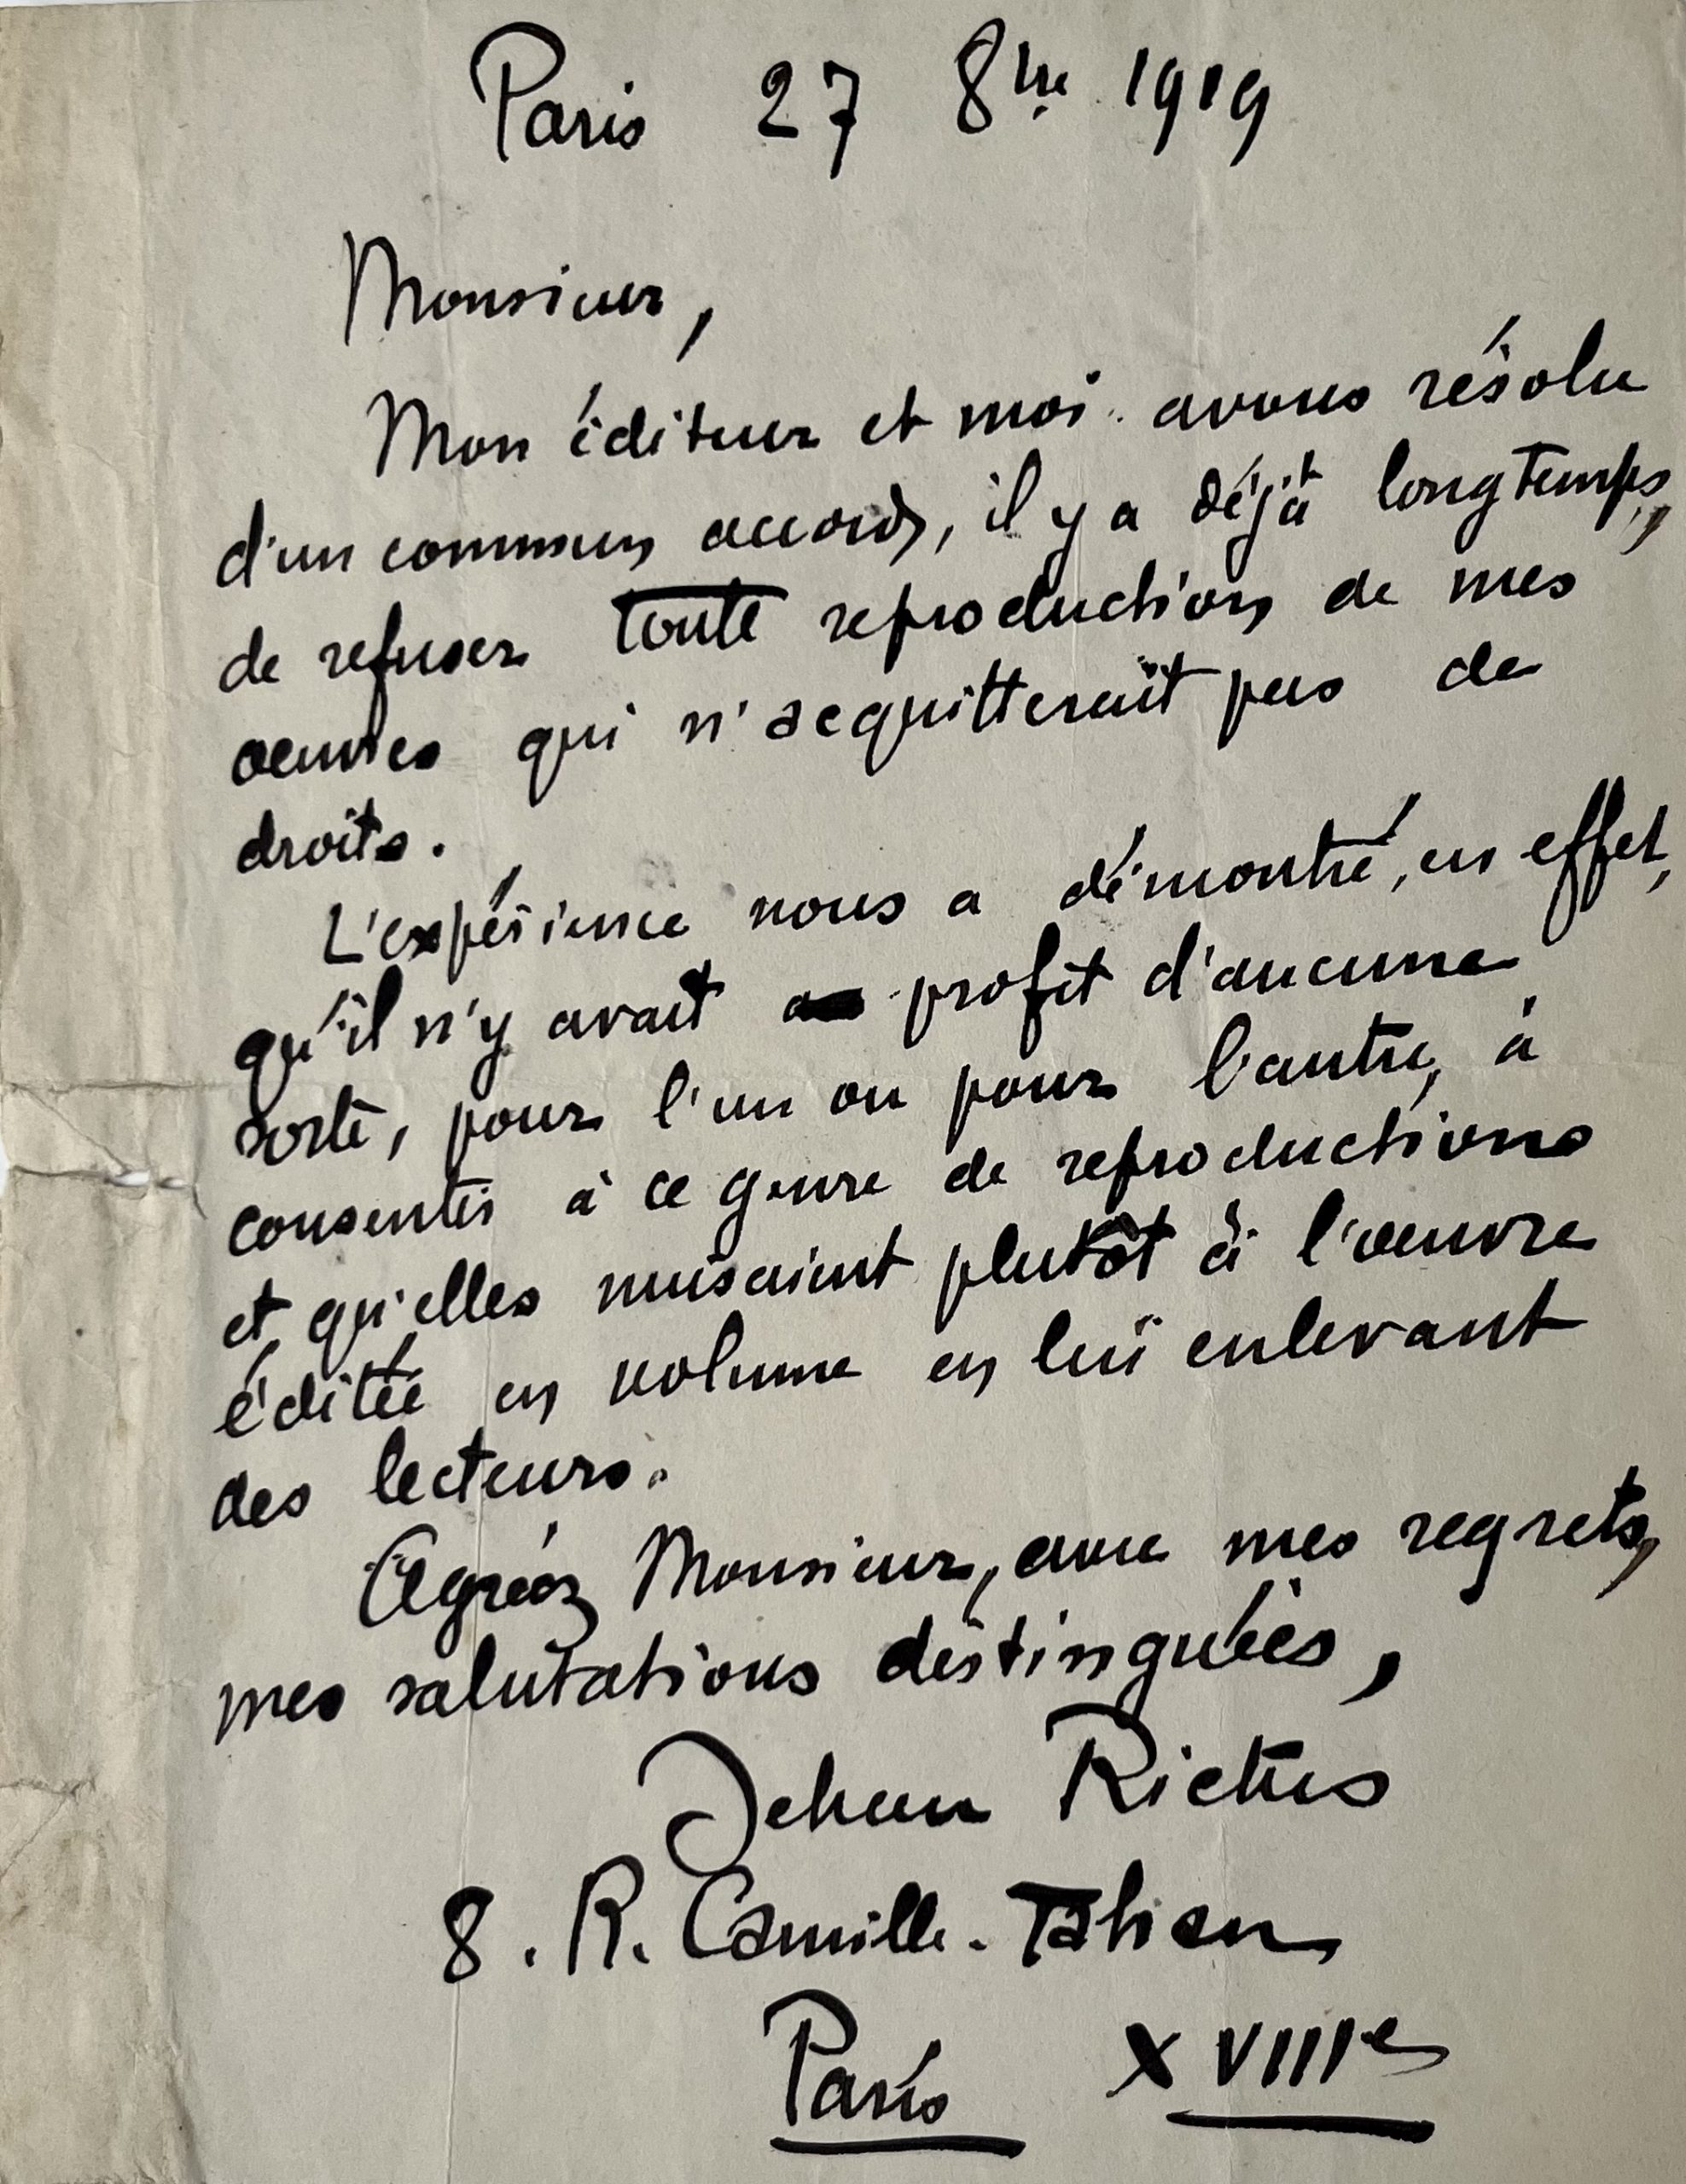 Paris 27 8bre 1919
Monsieur,
Mon éditeur et moi avons résolu
d'un commun accord, il y a déjà longtemps,
de refuser toute reproduction de mes
œuvres qui n'acquitterait pas de
droits.
L'expérience nous a démontré, en effet,
qu'il n'y avait profit d'aucune
sorte, pour l'un ou pour l'autre, à
consentir à ce genre de reproductions
et qu'elles nuisaient plutôt à l'œuvre
éditée en volume en lui enlevant
des lecteurs.
Agréez Monsieur, avec mes regrets,
mes salutations distinguées,
Jehan Rictus
8. R. Camille-Tahan
Paris XVIIIe